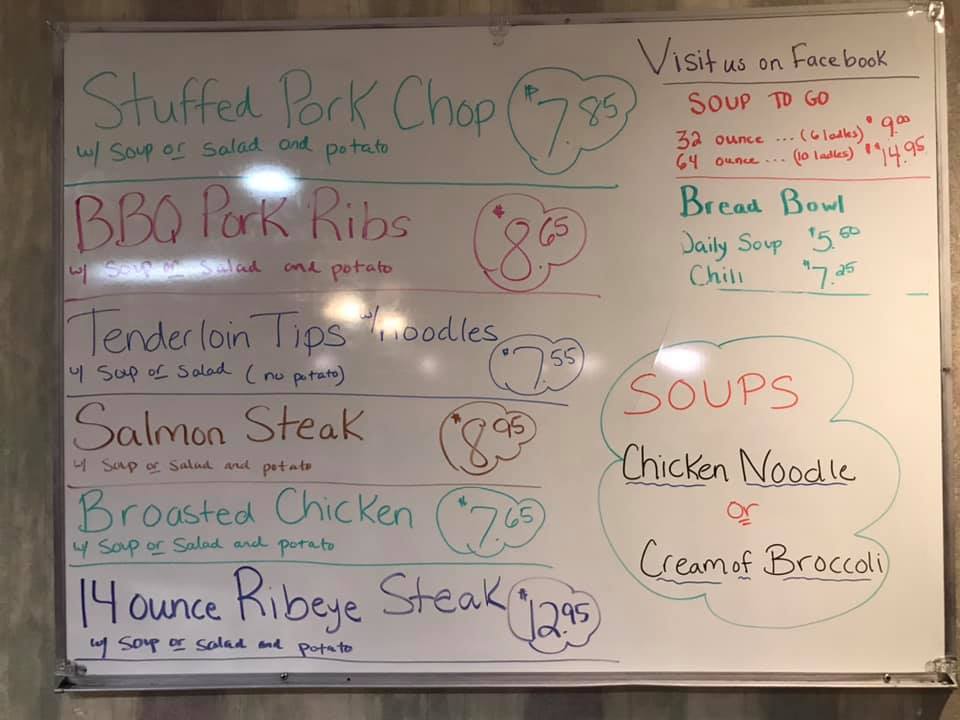 Stuffed Pork Chop $7.85
w/ Soup or Salad and potato
BBQ Pork Ribs $8.65
w/ Soup or Salad and potato
Tenderloin Tips w/noodles $7.55
w/ Soup or Salad (no potato)
Salmon Steak $8.95
w/ Soup or Salad and potato
Broasted Chicken $7.65
w/ Soup or Salad and potato
14 ounce Ribeye Steak $12.95
w/ Soup or Salad and potato
Visit us on Facebook
SOUP TO GO
32 ounce ... (6 ladles) $9.00
64 ounce ... (10 ladles) $14.95
Bread Bowl
Daily Soup $5.50
Chili $7.25
SOUPS
Chicken Noodle
or
Cream of Broccoli